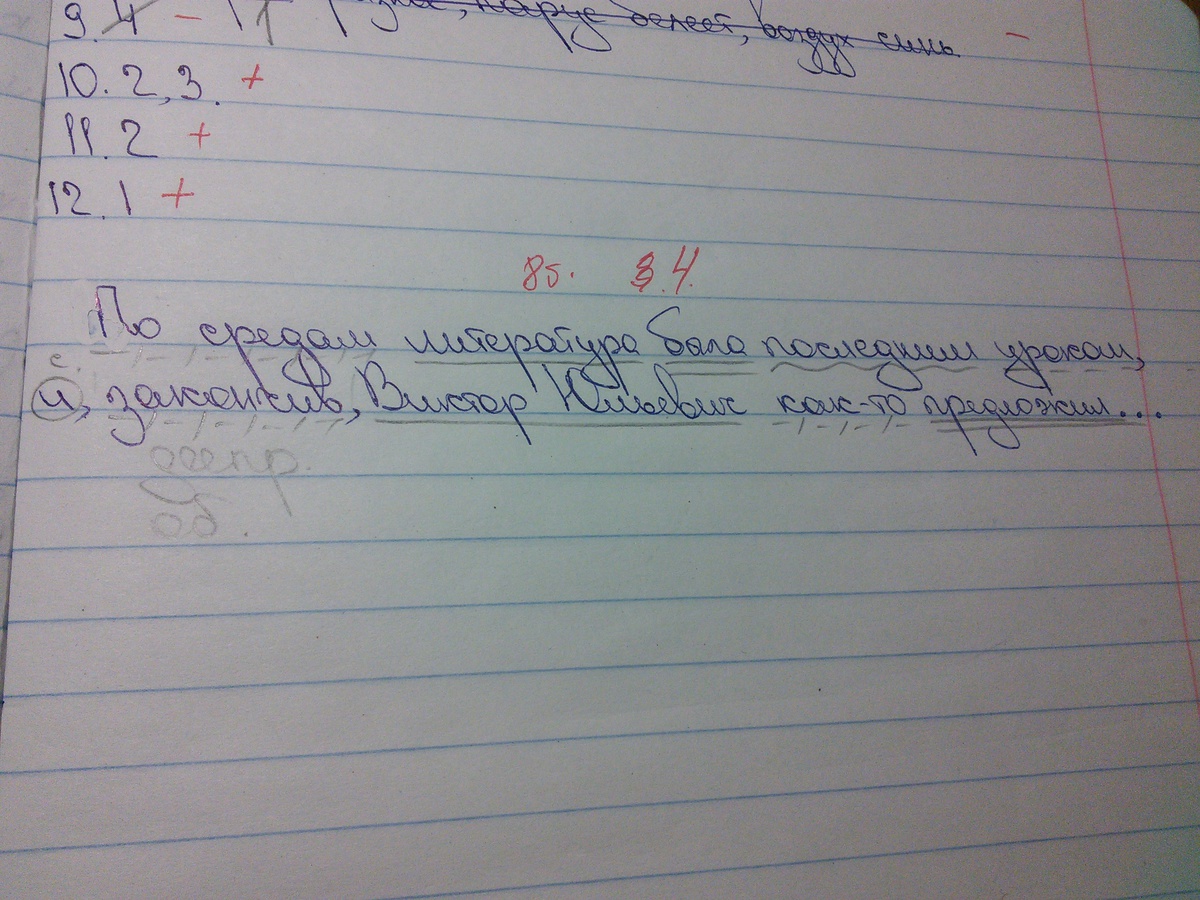 9. 4 - 11 парус белеет, воздух синь -
10. 2,3. +
11. 2 +
12. 1 +
8б. 3.4.
По средам литература была последним уроком,
с.
и, закончив, Виктор Юльевич как-то предложил...
деепр.
об.